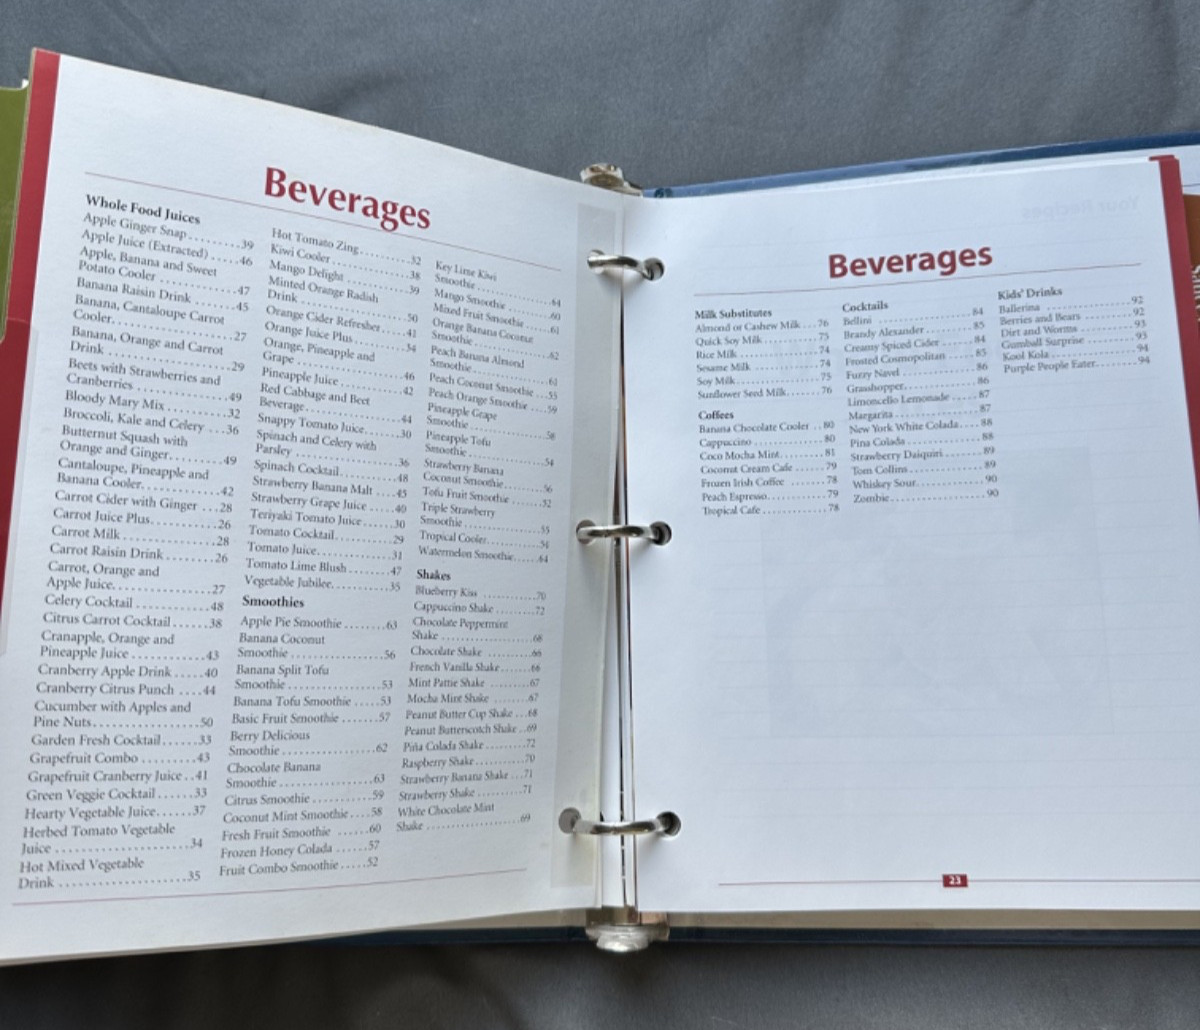 Beverages
Whole Food Juices
Apple Ginger Snap.........39
Apple Juice (Extracted) .....46
Apple, Banana and Sweet
Potato Cooler ..............47
Banana Raisin Drink .......45
Banana, Cantaloupe Carrot
Cooler.....................27
Banana, Orange and Carrot
Drink .....................29
Beets with Strawberries and
Cranberries ................49
Bloody Mary Mix ...........32
Broccoli, Kale and Celery ...36
Butternut Squash with
Orange and Ginger..........49
Cantaloupe, Pineapple and
Banana Cooler..............42
Carrot Cider with Ginger ...28
Carrot Juice Plus............26
Carrot Milk ................28
Carrot Raisin Drink ........26
Carrot, Orange and
Apple Juice.................27
Celery Cocktail .............48
Citrus Carrot Cocktail ......38
Cranapple, Orange and
Pineapple Juice .............43
Cranberry Apple Drink .....40
Cranberry Citrus Punch ....44
Cucumber with Apples and
Pine Nuts...................50
Garden Fresh Cocktail......33
Grapefruit Combo .........43
Grapefruit Cranberry Juice..41
Green Veggie Cocktail ......33
Hearty Vegetable Juice......37
Herbed Tomato Vegetable
Juice .......................34
Hot Mixed Vegetable
Drink ......................35
Hot Tomato Zing...........32
Kiwi Cooler................38
Mango Delight .............39
Minted Orange Radish
Drink .....................50
Orange Cider Refresher ....41
Orange Juice Plus..........34
Orange, Pineapple and
Grape .....................46
Pineapple Juice ............42
Red Cabbage and Beet
Beverage...................44
Snappy Tomato Juice.......30
Spinach and Celery with
Parsley ....................36
Spinach Cocktail...........48
Strawberry Banana Malt ....45
Strawberry Grape Juice .....40
Teriyaki Tomato Juice ......30
Tomato Cocktail............29
Tomato Juice...............31
Tomato Lime Blush ........47
Vegetable Jubilee...........35
Smoothies
Apple Pie Smoothie ........63
Banana Coconut
Smoothie ..................56
Banana Split Tofu
Smoothie ..................53
Banana Tofu Smoothie .....53
Basic Fruit Smoothie .......57
Berry Delicious
Smoothie ..................62
Chocolate Banana
Smoothie...................63
Citrus Smoothie ............59
Coconut Mint Smoothie ....58
Fresh Fruit Smoothie ......60
Frozen Honey Colada ......57
Fruit Combo Smoothie .....52
Key Lime Kiwi
Smoothie ..................64
Mango Smoothie ...........60
Mixed Fruit Smoothie ......61
Orange Banana Coconut
Smoothie...................62
Peach Banana Almond
Smoothie...................61
Peach Coconut Smoothie ...55
Peach Orange Smoothie ....59
Pineapple Grape
Smoothie ..................58
Pineapple Tofu
Smoothie...................54
Strawberry Banana
Coconut Smoothie .........56
Tofu Fruit Smoothie ........52
Triple Strawberry
Smoothie...................55
Tropical Cooler.............54
Watermelon Smoothie......64
Shakes
Blueberry Kiss .............70
Cappuccino Shake .........72
Chocolate Peppermint
Shake .....................68
Chocolate Shake ...........66
French Vanilla Shake.......66
Mint Pattie Shake .........67
Mocha Mint Shake .........67
Peanut Butter Cup Shake ...68
Peanut Butterscotch Shake ..69
Piña Colada Shake.........72
Raspberry Shake............70
Strawberry Banana Shake ...71
Strawberry Shake...........71
White Chocolate Mint
Shake .....................69
Beverages
Milk Substitutes
Almond or Cashew Milk ...76
Quick Soy Milk.............75
Rice Milk ..................74
Sesame Milk ...............74
Soy Milk...................75
Sunflower Seed Milk........76
Coffees
Banana Chocolate Cooler ..80
Cappuccino ................80
Coco Mocha Mint..........81
Coconut Cream Cafe .......79
Frozen Irish Coffee ........78
Peach Espresso.............79
Tropical Cafe ..............78
Cocktails
Bellini .....................84
Brandy Alexander..........85
Creamy Spiced Cider .......84
Frosted Cosmopolitan ......85
Fuzzy Navel ...............86
Grasshopper...............86
Limoncello Lemonade .....87
Margarita ..................87
New York White Colada....88
Pina Colada ................88
Strawberry Daiquiri ........89
Tom Collins................89
Whiskey Sour..............90
Zombie....................90
Kids' Drinks
Ballerina ..................92
Berries and Bears ..........92
Dirt and Worms ...........93
Gumball Surprise ..........93
Kool Kola..................94
Purple People Eater.........94
23